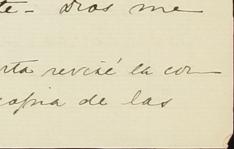 te- Dios me
rta revisé la con
copia de las